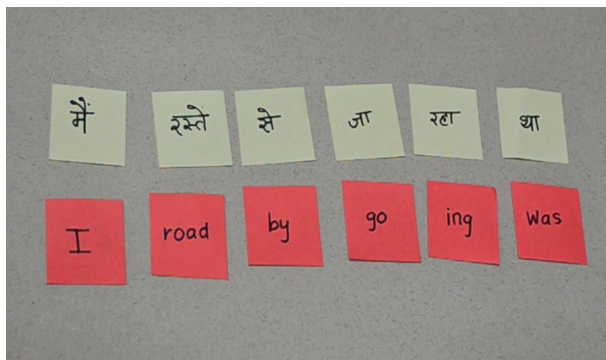 मैं रस्ते से जा रहा था
I road by go ing was